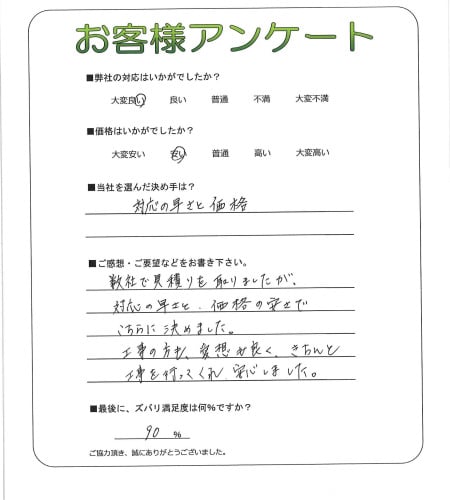 お客様アンケート
■弊社の対応はいかがでしたか？
大変良い 良い 普通 不満 大変不満
■価格はいかがでしたか？
大変安い 安い 普通 高い 大変高い
■当社を選んだ決め手は？
対応の早さと価格
■ご感想・ご要望などをお書き下さい。
数社で見積りを取りましたが、
対応の早さと、価格の安さで
こちらに決めました。
工事の方も、愛想が良く、きちんと
工事を行ってくれ、安心しました。
■最後に、ズバリ満足度は何%ですか？
90 %
ご協力頂き、誠にありがとうございました。